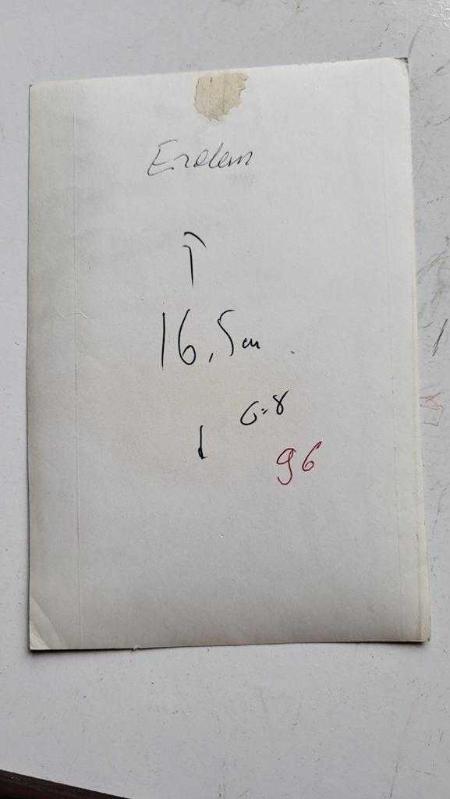 Erdem
↑
16,5 cm
6=8
↓
96